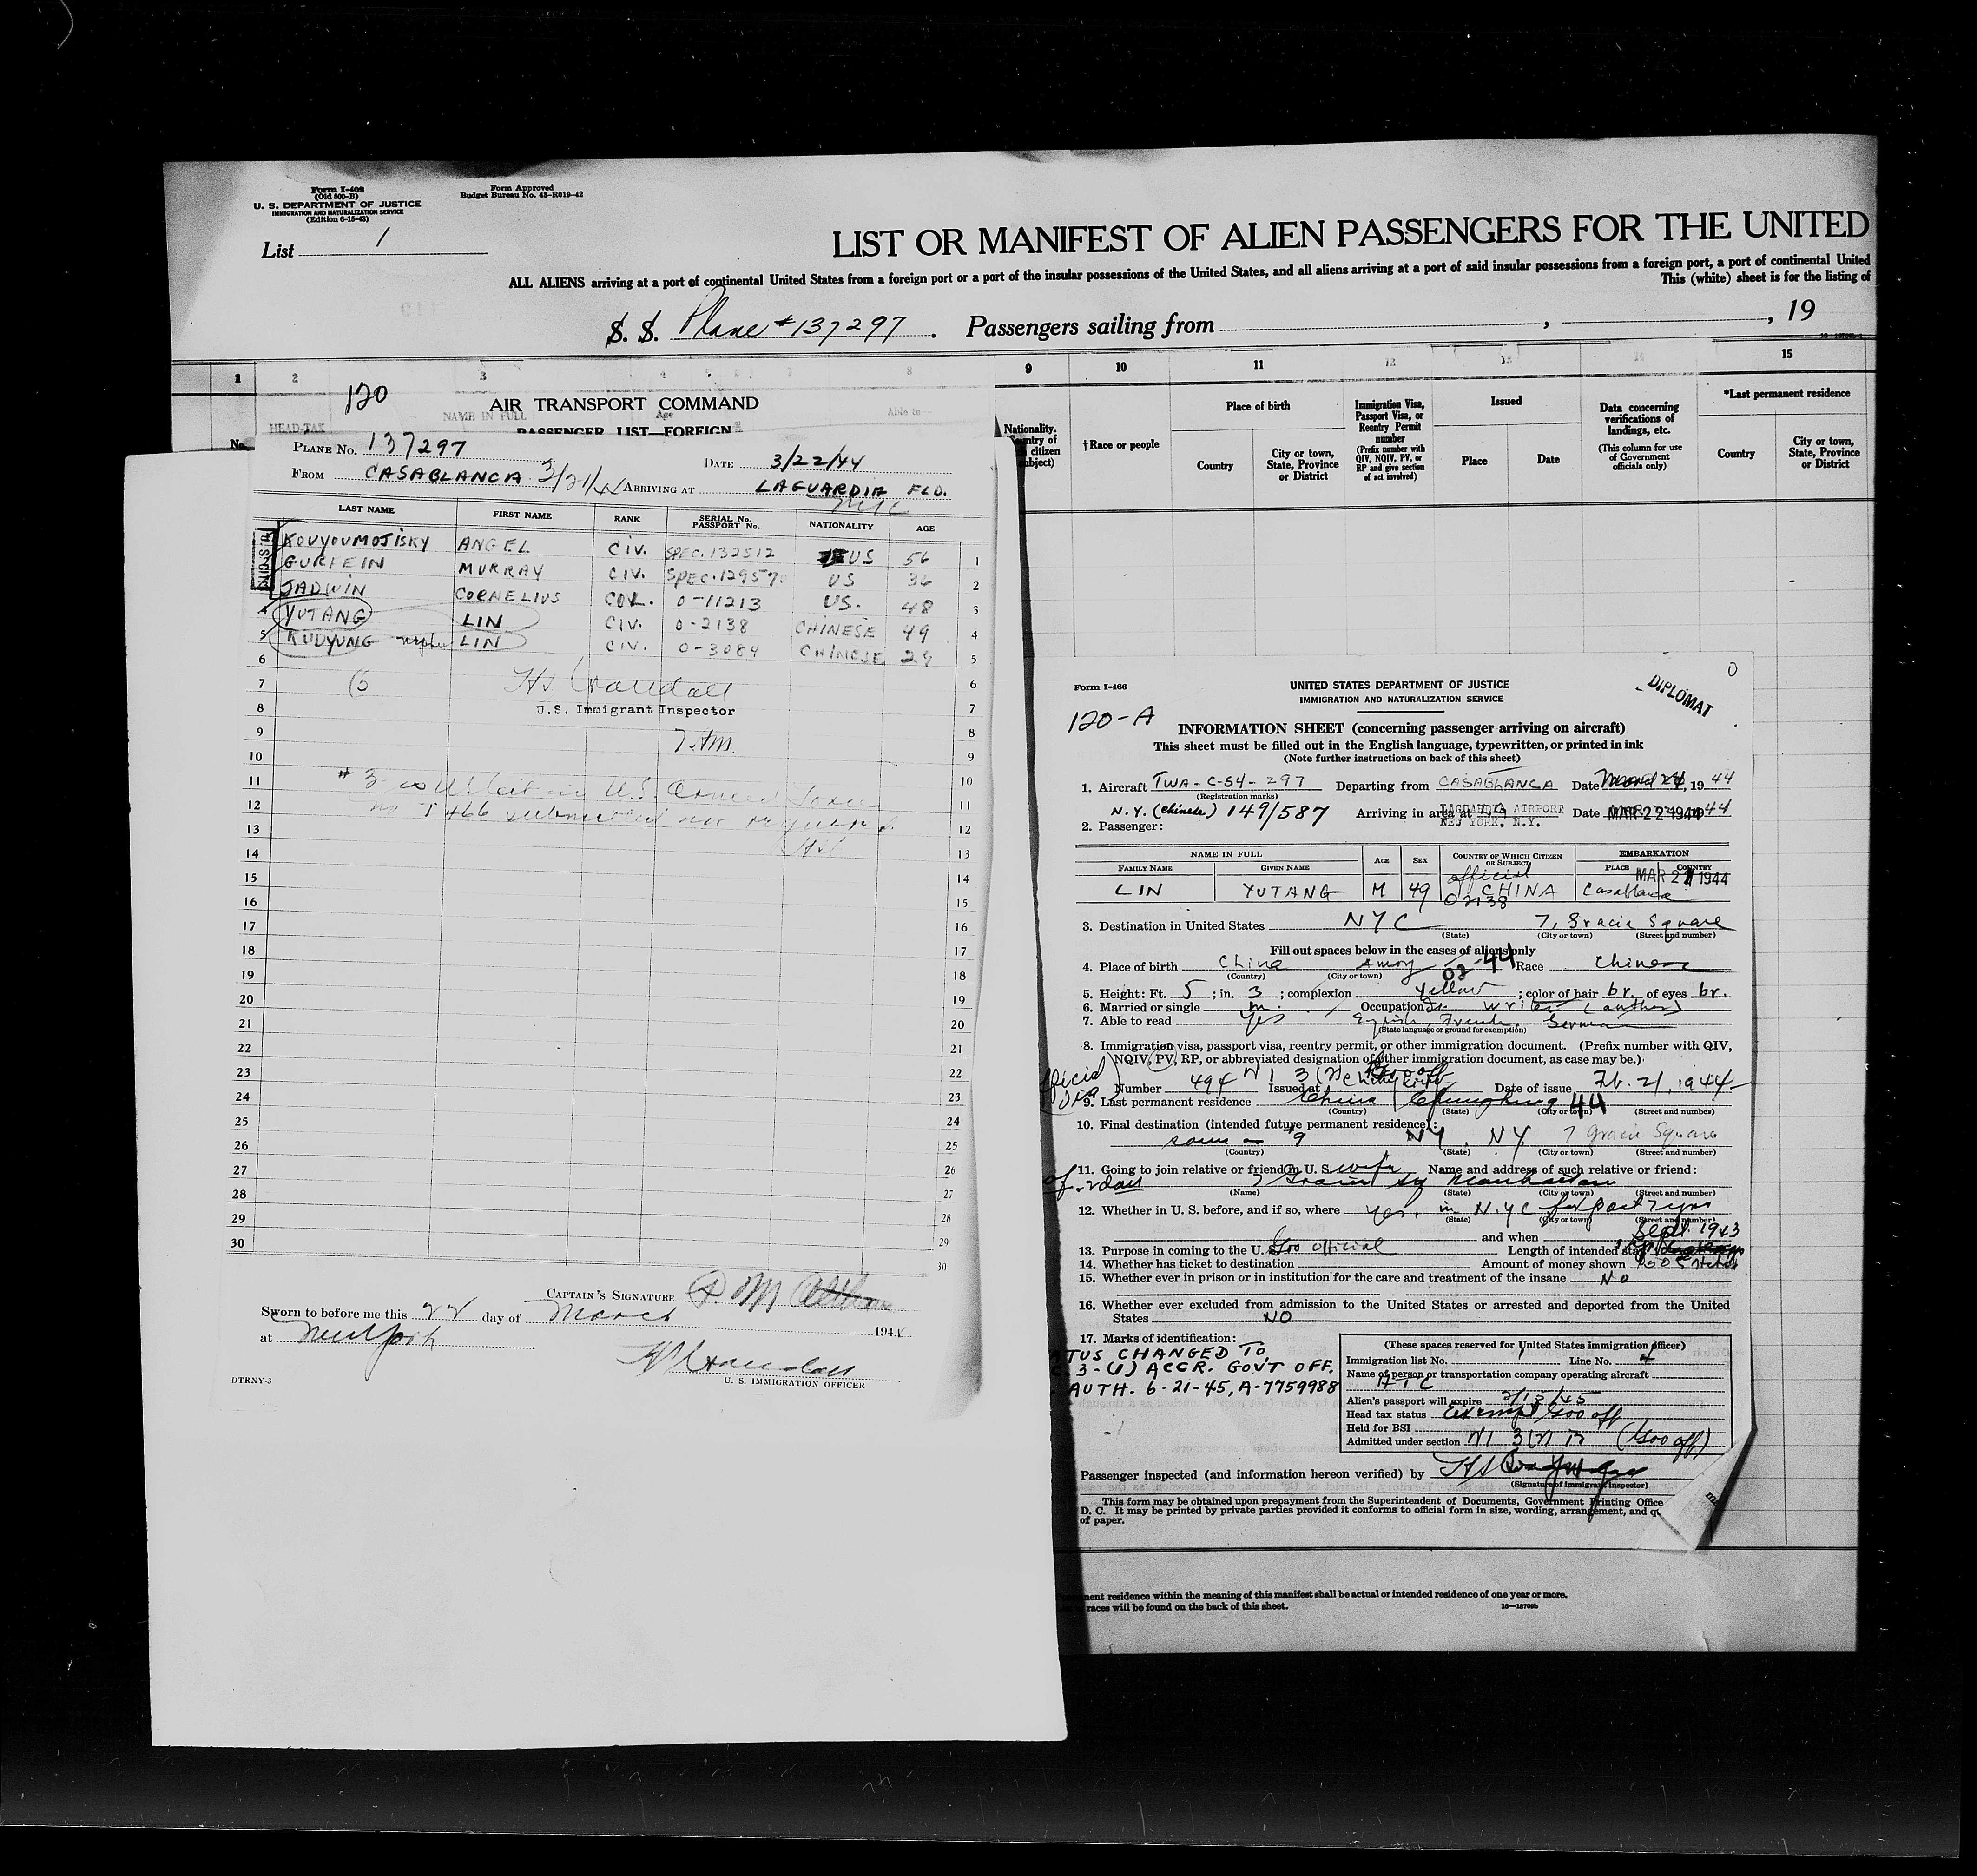 Form I-402
(Old 500-B)
U. S. DEPARTMENT OF JUSTICE
IMMIGRATION AND NATURALIZATION SERVICE
(Edition 6-15-43)
Form Approved
Budget Bureau No. 43-R019-42
List 1
LIST OR MANIFEST OF ALIEN PASSENGERS FOR THE UNITED
ALL ALIENS arriving at a port of continental United States from a foreign port or a port of the insular possessions of the United States, and all aliens arriving at a port of said insular possessions from a foreign port, a port of continental United
This (white) sheet is for the listing of
S. S. Plane # 137297. Passengers sailing from , , 19
1 2 3 4 5 6 7 8 9 10 11 12 13 14 15
HEAD-TAX
NAME IN FULL
Age
Able to
No.
Nationality.
citizen
†Race or people
Place of birth
Country
City or town, State, Province or District
Immigration Visa, Passport Visa, or Reentry Permit number
(Prefix number with QIV, NQIV, PV, or RP and give section of act involved)
Issued
Place
Date
Data concerning verifications of landings, etc.
(This column for use of Government officials only)
*Last permanent residence
Country
City or town, State, Province or District
120
AIR TRANSPORT COMMAND
PASSENGER LIST—FOREIGN
PLANE No. 137297
DATE 3/22/44
FROM CASABLANCA 3/21/44 ARRIVING AT LAGUARDIA FLD.
NYC
LAST NAME FIRST NAME RANK SERIAL No. PASSPORT No. NATIONALITY AGE
KOUYOUMOJISKY ANGEL CIV. SPEC. 132512 US 56 1
GURFEIN MURRAY CIV. SPEC. 129570 US 36 2
JADWIN CORNELIUS COL. 0-11213 US. 48 3
4 YUTANG LIN CIV. 0-2138 CHINESE 49 4
5 KUDYUNG LIN CIV. 0-3084 CHINESE 29 5
6
7 6
8 U.S. Immigrant Inspector 7
9 8
10 9
11 10
12 11
13 12
14 13
15 14
16 15
17 16
18 17
19 18
20 19
21 20
22 21
23 22
24 23
25 24
26 25
27 26
28 27
29 28
30 29
30
CAPTAIN'S SIGNATURE
Sworn to before me this 22 day of March 1944
at New York
U. S. IMMIGRATION OFFICER
DTRNY-3
Form I-466
UNITED STATES DEPARTMENT OF JUSTICE
IMMIGRATION AND NATURALIZATION SERVICE
DIPLOMAT
120-A
INFORMATION SHEET (concerning passenger arriving on aircraft)
This sheet must be filled out in the English language, typewritten, or printed in ink
(Note further instructions on back of this sheet)
1. Aircraft TWA-C-54-297 Departing from CASABLANCA Date , 19 44
(Registration marks)
N.Y. (Chinese) 149/587 Arriving in area at LAGUARDIA AIRPORT NEW YORK, N.Y. Date MAR 22 1944
2. Passenger:
NAME IN FULL AGE SEX COUNTRY OF WHICH CITIZEN OR SUBJECT EMBARKATION
FAMILY NAME GIVEN NAME PLACE COUNTRY
LIN YUTANG M 49 official CHINA 02138 Casablanca MAR 21 1944
3. Destination in United States NYC 7, Gracie Square
(State) (City or town) (Street and number)
Fill out spaces below in the cases of aliens only
4. Place of birth China Amoy Race Chinese
(Country) (City or town)
5. Height: Ft. 5; in. 3; complexion Yellow; color of hair br. of eyes br.
6. Married or single m. Occupation writer (author)
7. Able to read Yes English, French, German
(State language or ground for exemption)
8. Immigration visa, passport visa, reentry permit, or other immigration document. (Prefix number with QIV,
NQIV, PV, RP, or abbreviated designation of other immigration document, as case may be.)
Number 494 Issued at Date of issue Feb. 21, 1944
9. Last permanent residence China Chungking
(Country) (State) (City or town) (Street and number)
10. Final destination (intended future permanent residence):
same as #9 NY, NY 7 Gracie Square
(Country) (State) (City or town) (Street and number)
11. Going to join relative or friend in U. S. wife Name and address of such relative or friend:
7 Gracie Sq Manhattan
(Name) (State) (City or town) (Street and number)
12. Whether in U. S. before, and if so, where yes, in N.Y.C for past 7 yrs
(State) (City or town) (Street and number)
and when Sept. 1943
13. Purpose in coming to the U. S. Gov official Length of intended stay
14. Whether has ticket to destination Amount of money shown
15. Whether ever in prison or in institution for the care and treatment of the insane NO
16. Whether ever excluded from admission to the United States or arrested and deported from the United
States NO
17. Marks of identification:
STATUS CHANGED TO
3-(1) ACCR. GOV'T OFF.
AUTH. 6-21-45, A-7759988
(These spaces reserved for United States immigration officer)
Immigration list No. 1 Line No. 4
Name of person or transportation company operating aircraft
ATC
Alien's passport will expire 2/15/45
Head tax status exempt Gov off
Held for BSI
Admitted under section (Gov off)
Passenger inspected (and information hereon verified) by
(Signature of immigrant inspector)
This form may be obtained upon prepayment from the Superintendent of Documents, Government Printing Office
D. C. It may be printed by private parties provided it conforms to official form in size, wording, arrangement, and
of paper.
residence within the meaning of this manifest shall be actual or intended residence of one year or more.
races will be found on the back of this sheet.